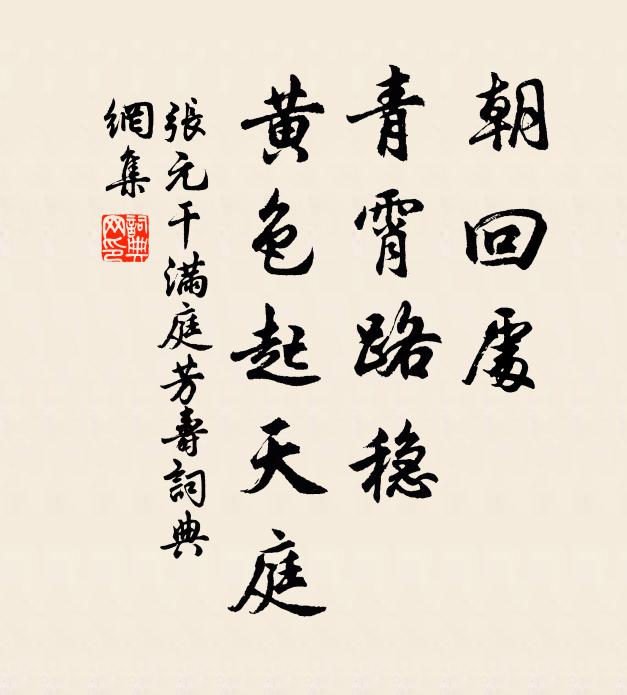 朝回處
青霄路稳
黄色起天庭
張元干滿庭芳壽詞典
網集
詞典
网印